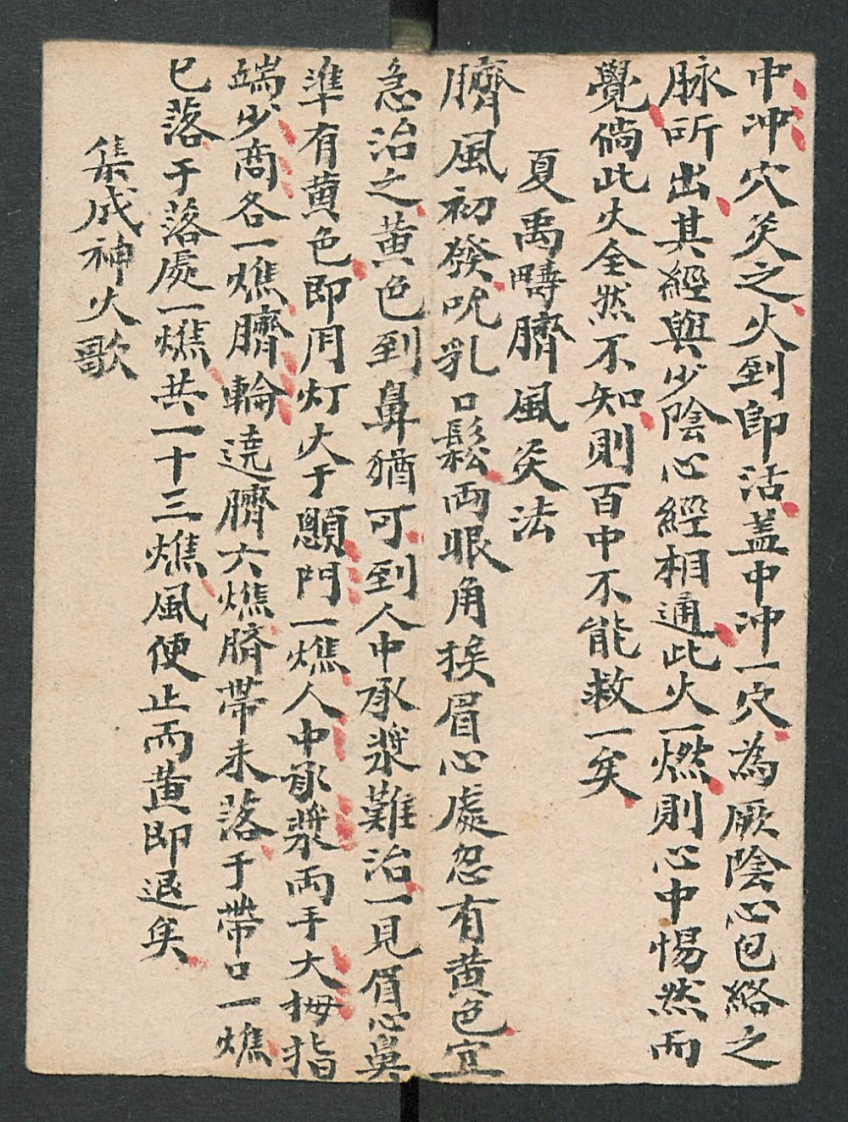 中冲穴灸之火到即活盖中冲一穴為厥陰心包絡之
脉所出其經與少陰心經相通此火一燃則心中惕然而
覺倘此火全然不知則百中不能救一矣
夏禹疇臍風灸法
臍風初發吮乳口鬆兩眼角挨眉心處忽有黄色宜
急治之黄色到鼻猶可到人中承漿難治一見眉心鼻
準有黄色即用灯火于顖門一燋人中承漿兩手大拇指
端少商各一燋臍輪遶臍六燋脐帶未落于帶口一燋
已落于落處一燋共一十三燋風便止而黄即退矣
集成神火歌